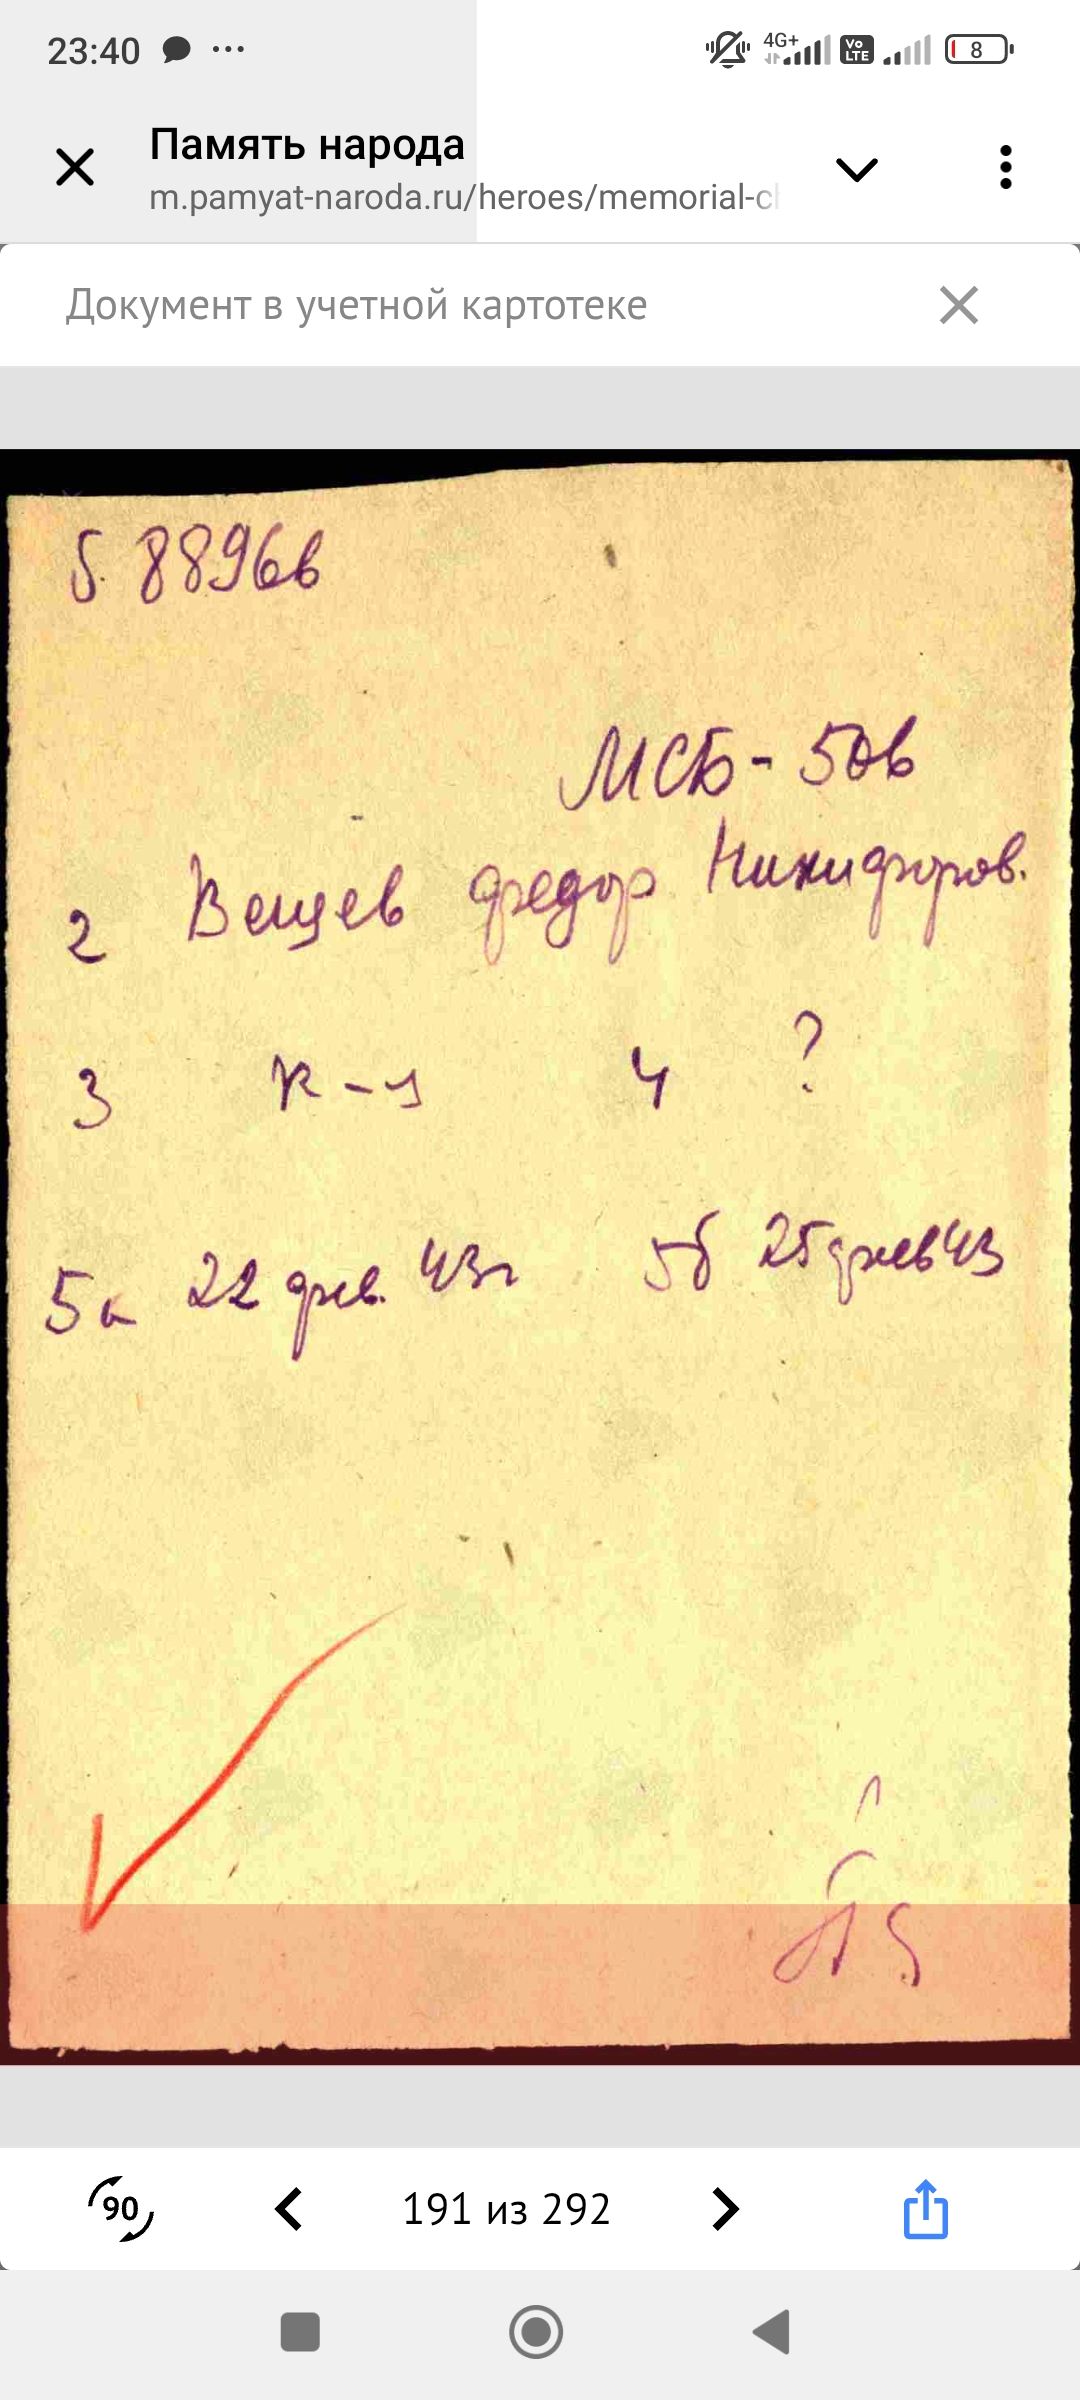 23:40
4G+ Vo LTE 8
Память народа
m.pamyat-naroda.ru/heroes/memorial-ch
Документ в учетной картотеке
5. 8896в
МСБ - 50в
2 Вещев Федор Никифоров.
3 к-ц 4 ?
5а 22 фев. 43г 5б 25 фев 43
90 191 из 292